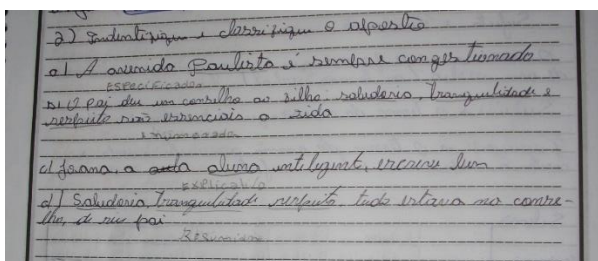 2) Indentifique e classifique o aposto
a) A avenida Paulista é sempre congestionado
Especificador
b) O pai deu um conselho ao filho sabedoria, tranquilidade e
respeito são essenciais a vida
enumerador
c) Joana, a aluna inteligente, escreve bem
Explicativo
d) Sabedoria, tranquilidade respeito, tudo estava no conse-
lho, de seu pai
Resumidor